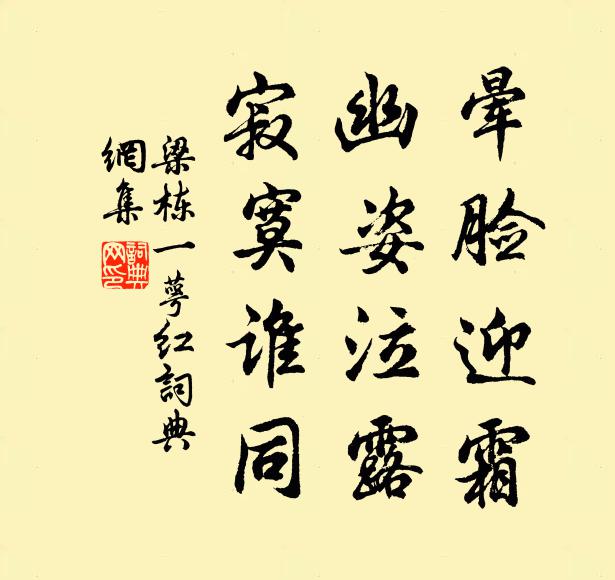 晕脸迎霜
幽姿泣露
寂寞谁同
梁栋一萼红詞典
網集
詞典網印